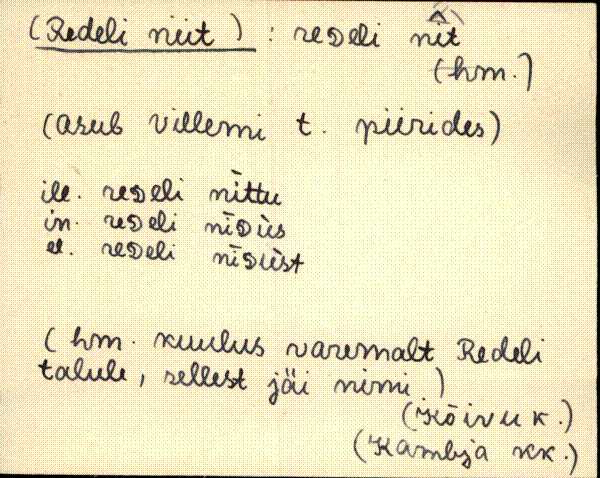 (Redeli niit) : reDeli nīt
(hm.)
(asub Villemi t. piirides)
ill. reDeli nīttu
in. reDeli nīDùs
el. reDeli nīDùst
(hm. kuulus varemalt Redeli
talule, sellest jäi nimi)
(Kõivu k.)
(Kambja kk.)